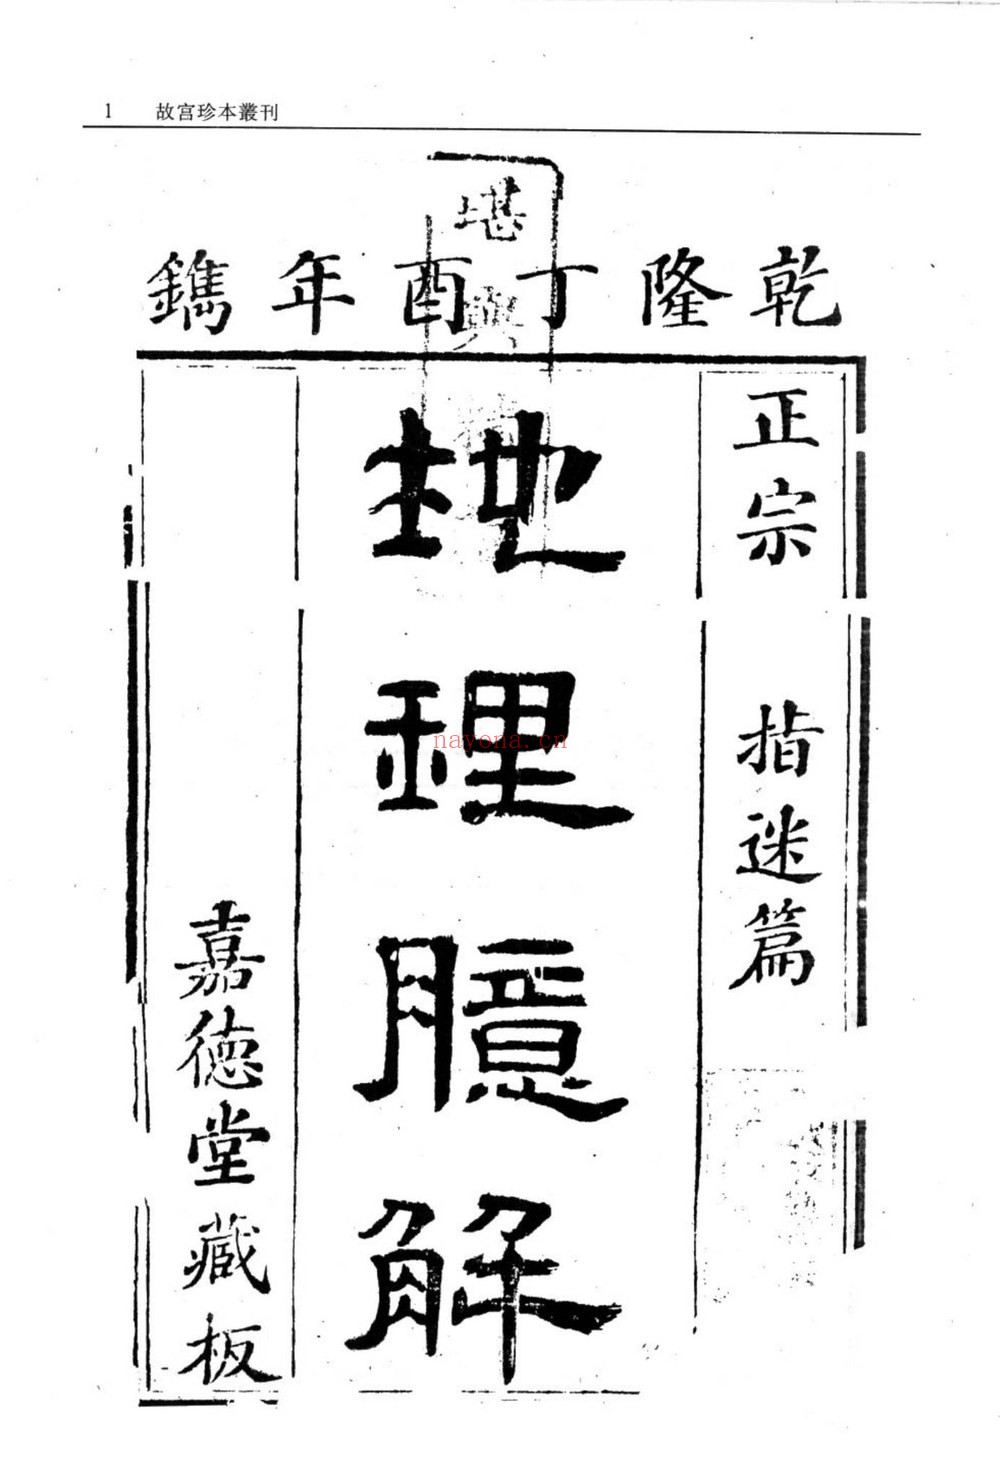 1 故宫珍本叢刊
堪輿
乾隆丁酉年鐫
正宗 指迷篇
地理臆解
嘉德堂藏板
nayona.cn